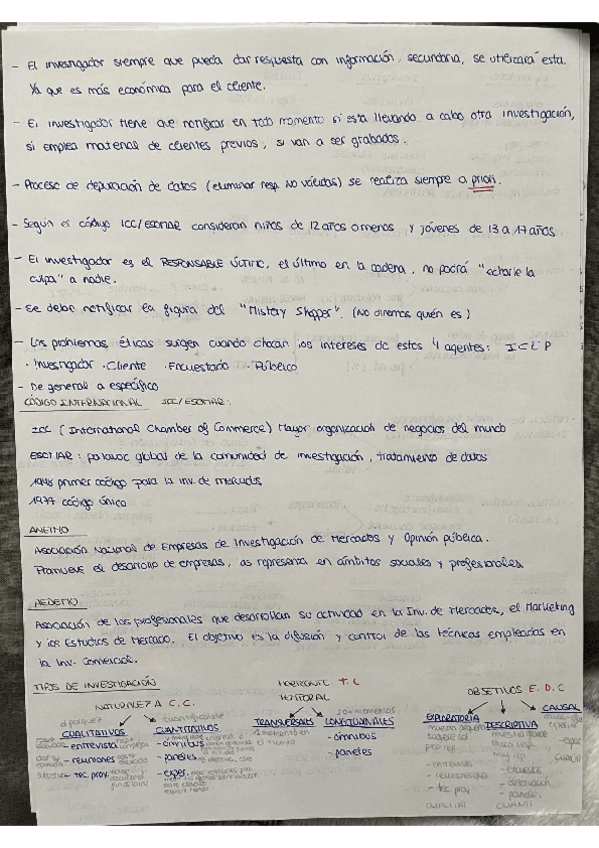 - El investigador siempre que pueda dar respuesta con información secundaria, se utilizará esta.
Ya que es más económica para el cliente.
- El investigador tiene que notificar en todo momento si está llevando a cabo otra investigación,
si emplea material de clientes previos, si van a ser grabados.
- Proceso de depuración de datos (eliminar resp. NO válidas) se realiza siempre a priori.
- Según el código ICC/ESOMAR consideran niños de 12 años o menos y jóvenes de 13 a 17 años
- El investigador es el RESPONSABLE ÚLTIMO, es el último en la cadena, no podrá "echarle la
culpa" a nadie.
- Se debe notificar la figura del "Mistery Shopper". (No diremos quién es)
- Los problemas éticos surgen cuando chocan los intereses de estos 4 agentes: I C E P
· Investigador · Cliente · Encuestado · Público
- De general a específico
CÓDIGO INTERNACIONAL ICC/ESOMAR:
ICC (International Chamber of Commerce) Mayor organización de negocios del mundo
ESOMAR: portavoz global de la comunidad de investigación, tratamiento de datos
1948 primer código para la inv. de mercados
1977 código único
ANEIMO
Asociación Nacional de Empresas de Investigación de Mercados y Opinión pública.
Promueve el desarrollo de empresas, las representa en ámbitos sociales y profesionales
AEDEMO
Asociación de los profesionales que desarrollan su actividad en la Inv. de Mercados, el Marketing
y los Estudios de Mercado. El objetivo es la difusión y control de las técnicas empleadas en
la Inv. Comercial.
TIPOS DE INVESTIGACIÓN
NATURALEZA C.C.
HORIZONTE TEMPORAL T.L
OBJETIVOS E.D.C
CUALITATIVOS CUANTITATIVOS TRANSVERSALES LONGITUDINALES EXPLORATORIA DESCRIPTIVA CAUSAL
- entrevista - ómnibus - ómnibus
- reuniones - paneles - paneles
- tec. proy. - exper.
- entrevistas - encuestas
- tec. proy - paneles